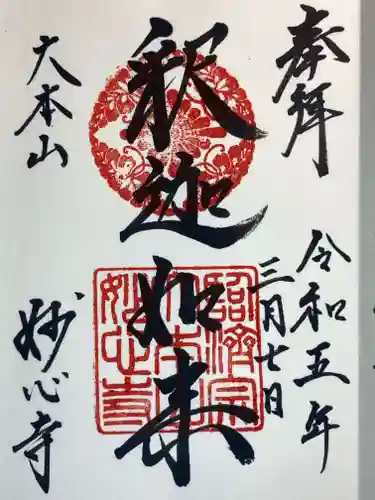 奉拝
令和五年
三月七日
釈迦如来
臨済宗
大本山
妙心寺
大本山
妙心寺